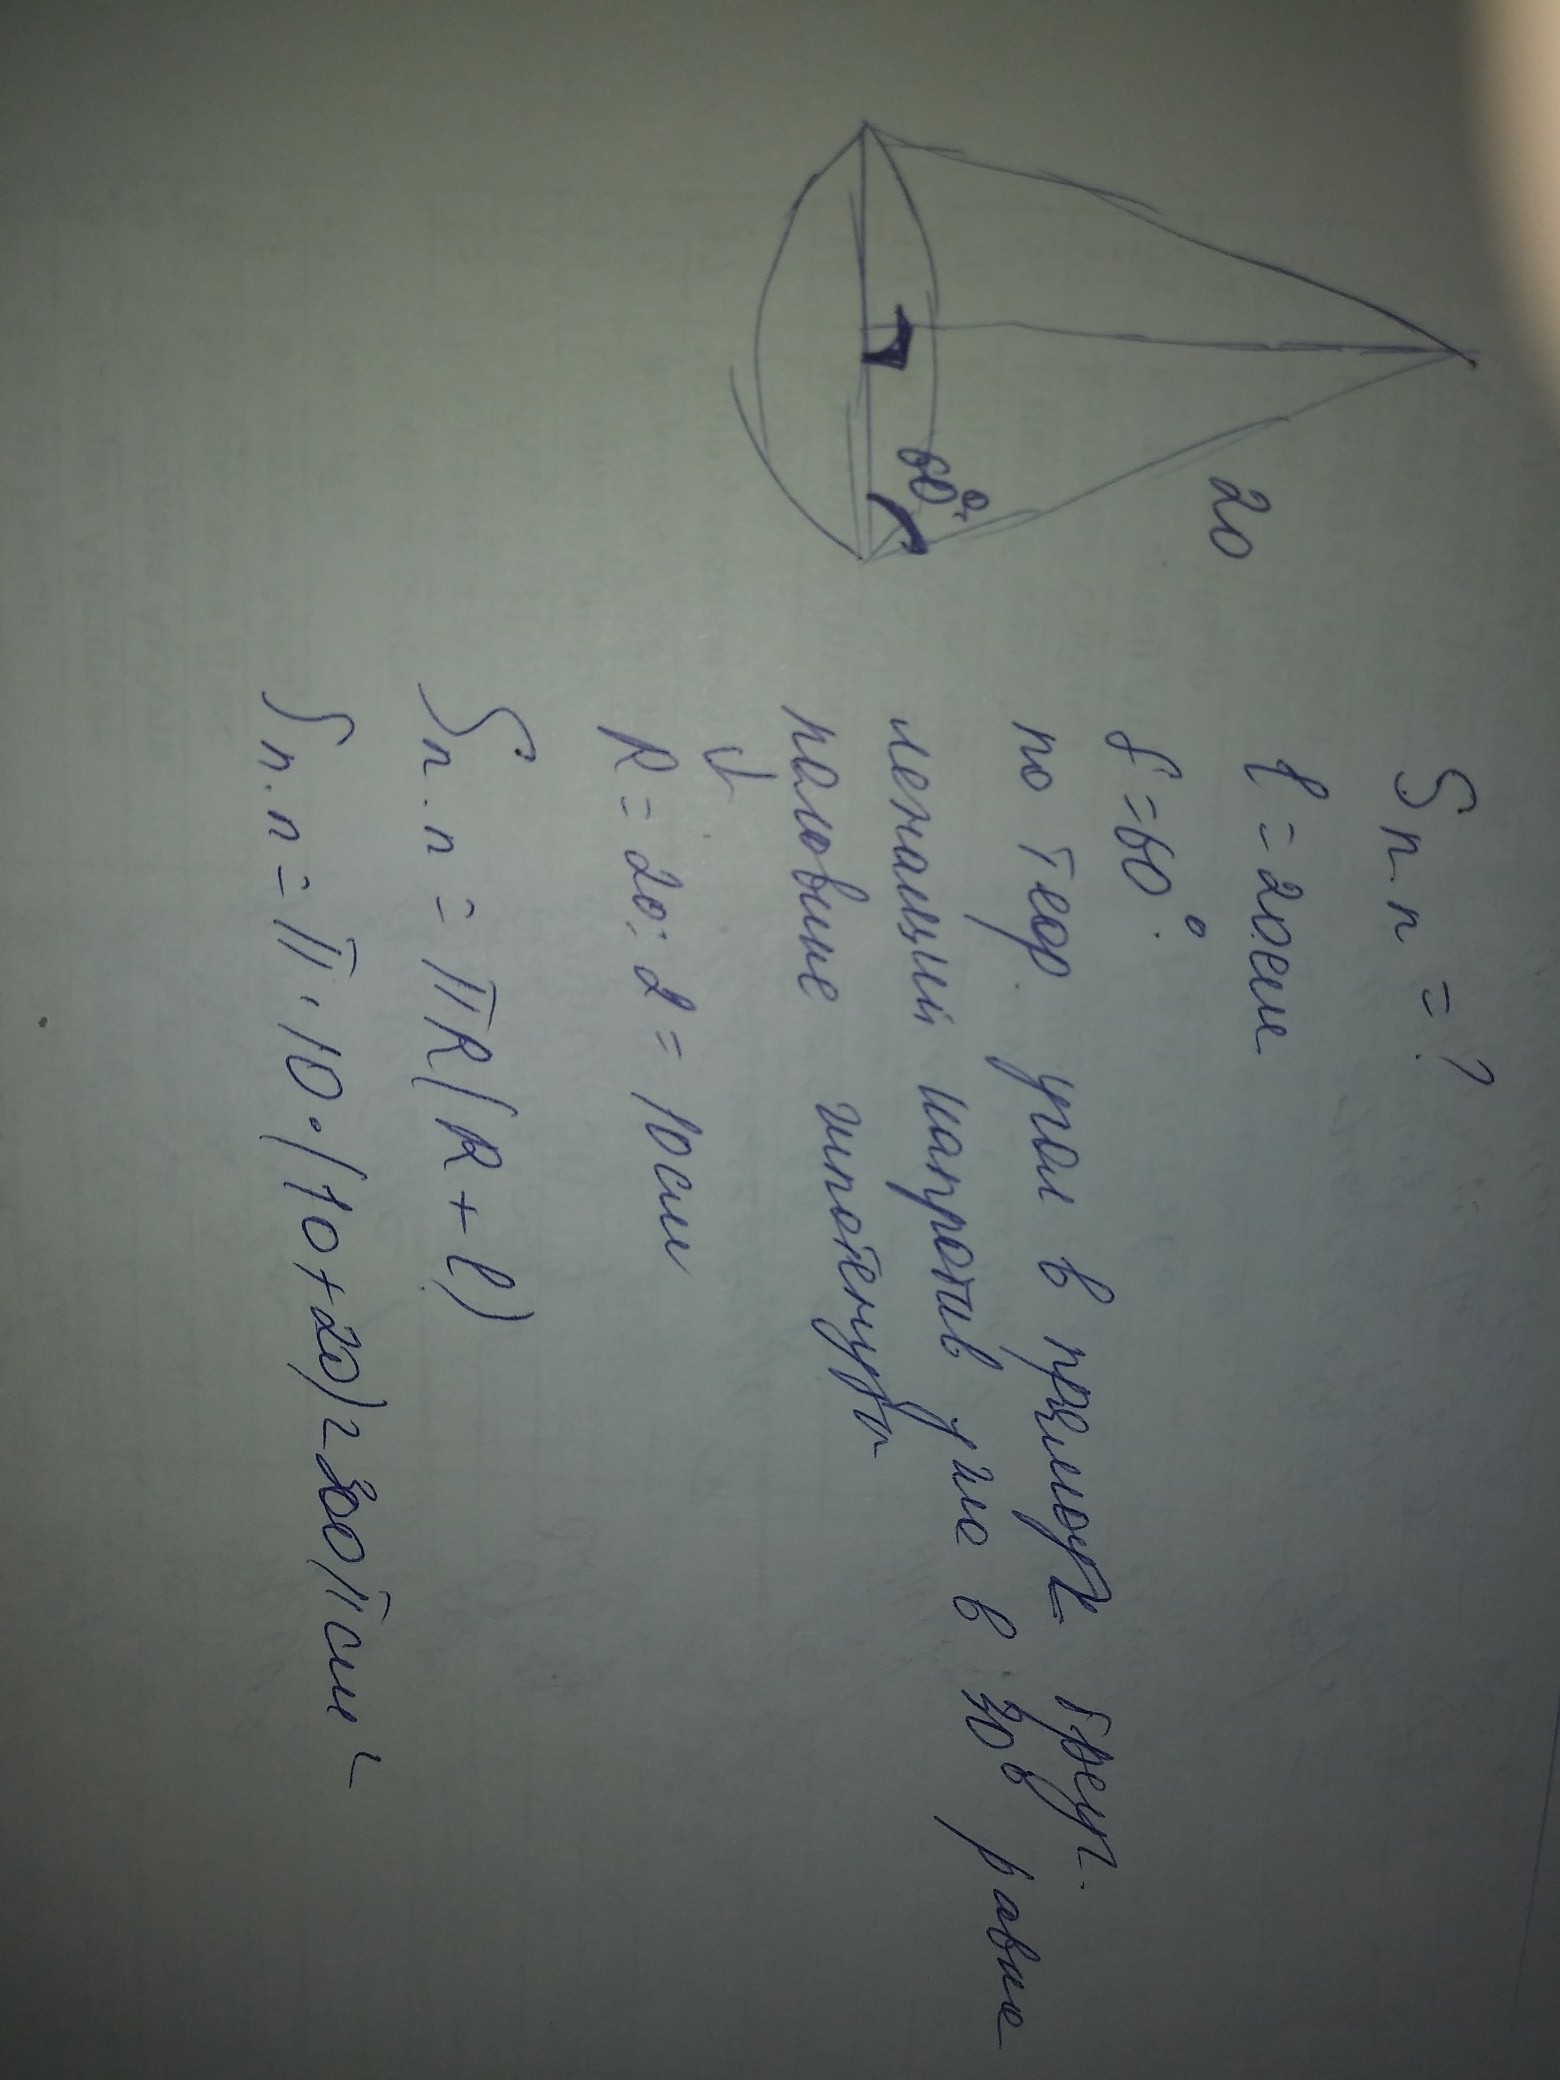 20
60°
Sп.п = ?
l = 20см
= 60°
по теор. угол в прямоуг треуг.
лежащий напротив угла в 30° равне
половине гипотенузы
↓
R = 20 : 2 = 10см
Sп.п = πR(R + l)
Sп.п = π · 10 · (10 + 20) = 300π см²